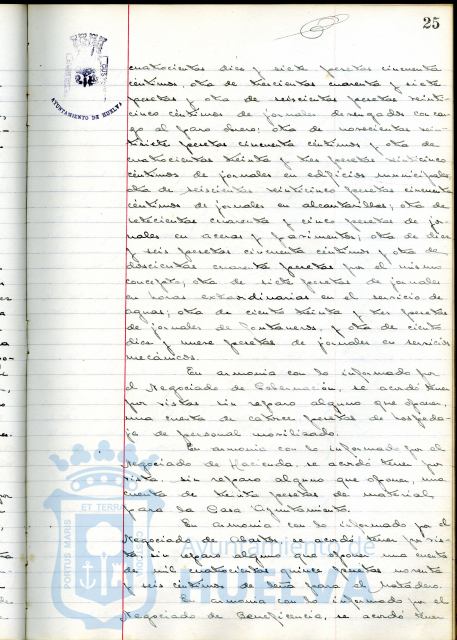 25
AYUNTAMIENTO DE HUELVA
cuatrocientas diez y siete pesetas cincuenta
céntimos, otra de trescientas cuarenta y siete
pesetas y otra de seiscientas pesetas veinti-
cinco céntimos de jornales devengados con car-
go al paro obrero; otra de novecientas vein-
tisiete pesetas cincuenta céntimos y otra de
cuatrocientas treinta y tres pesetas veinticinco
céntimos de jornales en edificios municipales,
otra de seiscientas veinticinco pesetas cincuenta
céntimos de jornales en alcantarillas; otra de
setecientas cuarenta y cinco pesetas de jor-
nales en aceras y pavimentos; otra de diez
y seis pesetas cincuenta céntimos y otra de
doscientas cuarenta pesetas por el mismo
concepto; otra de siete pesetas de jornales
en horas extraordinarias en el servicio de
aguas; otra de ciento treinta y tres pesetas
de jornales de Fontaneros, y otra de ciento
diez y nueve pesetas de jornales en servicios
mecánicos.
En armonia con lo informado por
el Negociado de Gobernación, se acordó tener
por vistas sin reparo alguno que oponer,
una cuenta de catorce pesetas de hospeda-
je de personal movilizado.
En armonia con lo informado por el
Negociado de Hacienda, se acordó tener por
vista, sin reparo alguno que oponer, una
cuenta de treinta pesetas de material
para la Casa Ayuntamiento.
En armonia con lo informado por el
Negociado de Abastos se acordó tener por vis-
ta, sin reparo alguno que oponer una cuenta
de mil cuatrocientas quince pesetas noventa
y seis céntimos de leña para el Matadero.
En armonia con lo informado por el
Negociado de Beneficencia, se acordó tener
PORTUS MARIS ET TERRAE
Ayuntamiento de
HUELVA